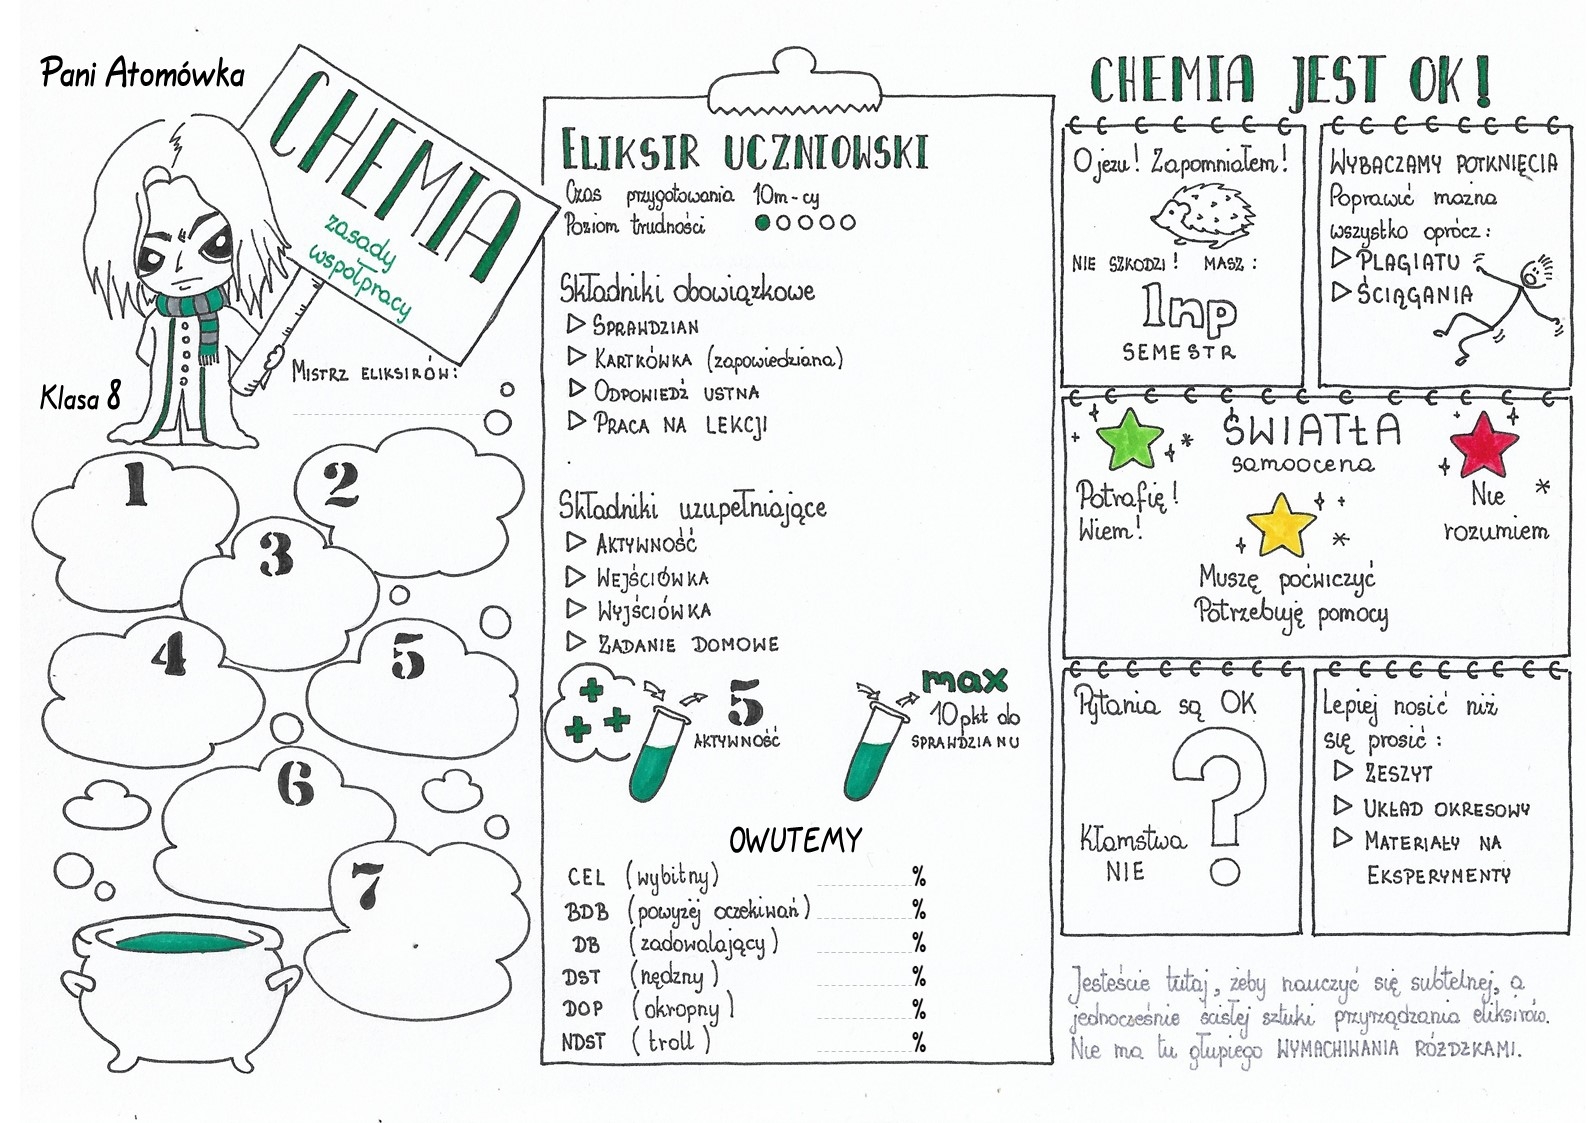 Pani Atomówka
CHEMIA
zasady
współpracy
Mistrz eliksirów:
Klasa 8
1
2
3
4
5
6
7
Eliksir uczniowski
Czas przygotowania 10m-cy
Poziom trudności
Składniki obowiązkowe
Sprawdzian
Kartkówka (zapowiedziana)
Odpowiedź ustna
Praca na lekcji
Składniki uzupełniające
Aktywność
Wejściówka
Wyjściówka
Zadanie domowe
5
AKTYWNOŚĆ
max
10pkt do
SPRAWDZIANU
OWUTEMY
CEL (wybitny) %
BDB (powyżej oczekiwań) %
DB (zadowalający) %
DST (nędzny) %
DOP (okropny) %
NDST (troll) %
CHEMIA JEST OK!
O jezu! Zapomniałem!
NIE SZKODZI! MASZ:
1np
SEMESTR
WYBACZAMY POTKNIĘCIA
Poprawić można
wszystko oprócz:
PLAGIATU
ŚCIĄGANIA
ŚWIATŁA
samoocena
Potrafię!
Wiem!
Nie
rozumiem
Muszę poćwiczyć
Potrzebuję pomocy
Pytania są OK
?
Kłamstwa
NIE
Lepiej nosić niż
się prosić:
Zeszyt
Układ okresowy
Materiały na
Eksperymenty
Jesteście tutaj, żeby nauczyć się subtelnej, a
jednocześnie ścisłej sztuki przyrządzania eliksirów.
Nie ma tu głupiego WYMACHIWANIA RÓŻDŻKAMI.